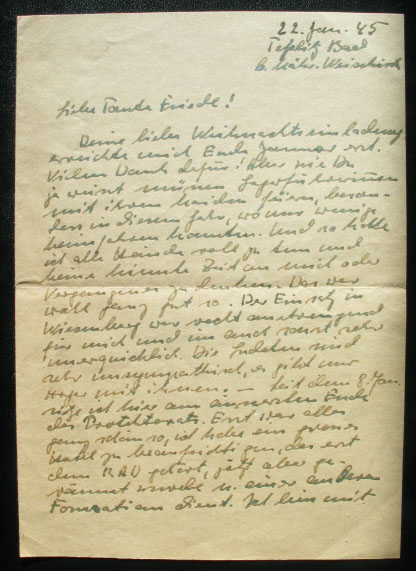 22. Jan. 45
Teplitz Bad
b. Mähr. Weisskirch
Liebe Tante Friedl!
Deine liebe Weihnachtseinladung
erreichte mich Ende Januar erst.
Vielen Dank dafür! Aber wie Du
ja weisst müssen Lagerführerinnen
mit ihren Maiden feiern, beson-
ders in diesem Jahr, wo nur wenige
heimfahren konnten. Und so hatte
ich alle Hände voll zu tun und
keine Zeit an mich oder
Vergangenes zu denken. Das war
wohl ganz gut so. Der Einsatz in
Wiesenberg war recht anstrengend
für mich und im auch sonst sehr
unerquicklich. Die Sudeten sind
sehr unsympathisch, es gibt nur
Ärger mit ihnen. – Seit dem 8. Jan.
ich hier am äussersten Ende
des Protektorats. Erst war alles
ganz schön so, ich hatte ein grosses
Hotel zu beaufsichtigen, das erst
dem RAD gehört, jetzt aber ge-
räumt wurde u. einer anderen
Formation dient. Ich bin mit